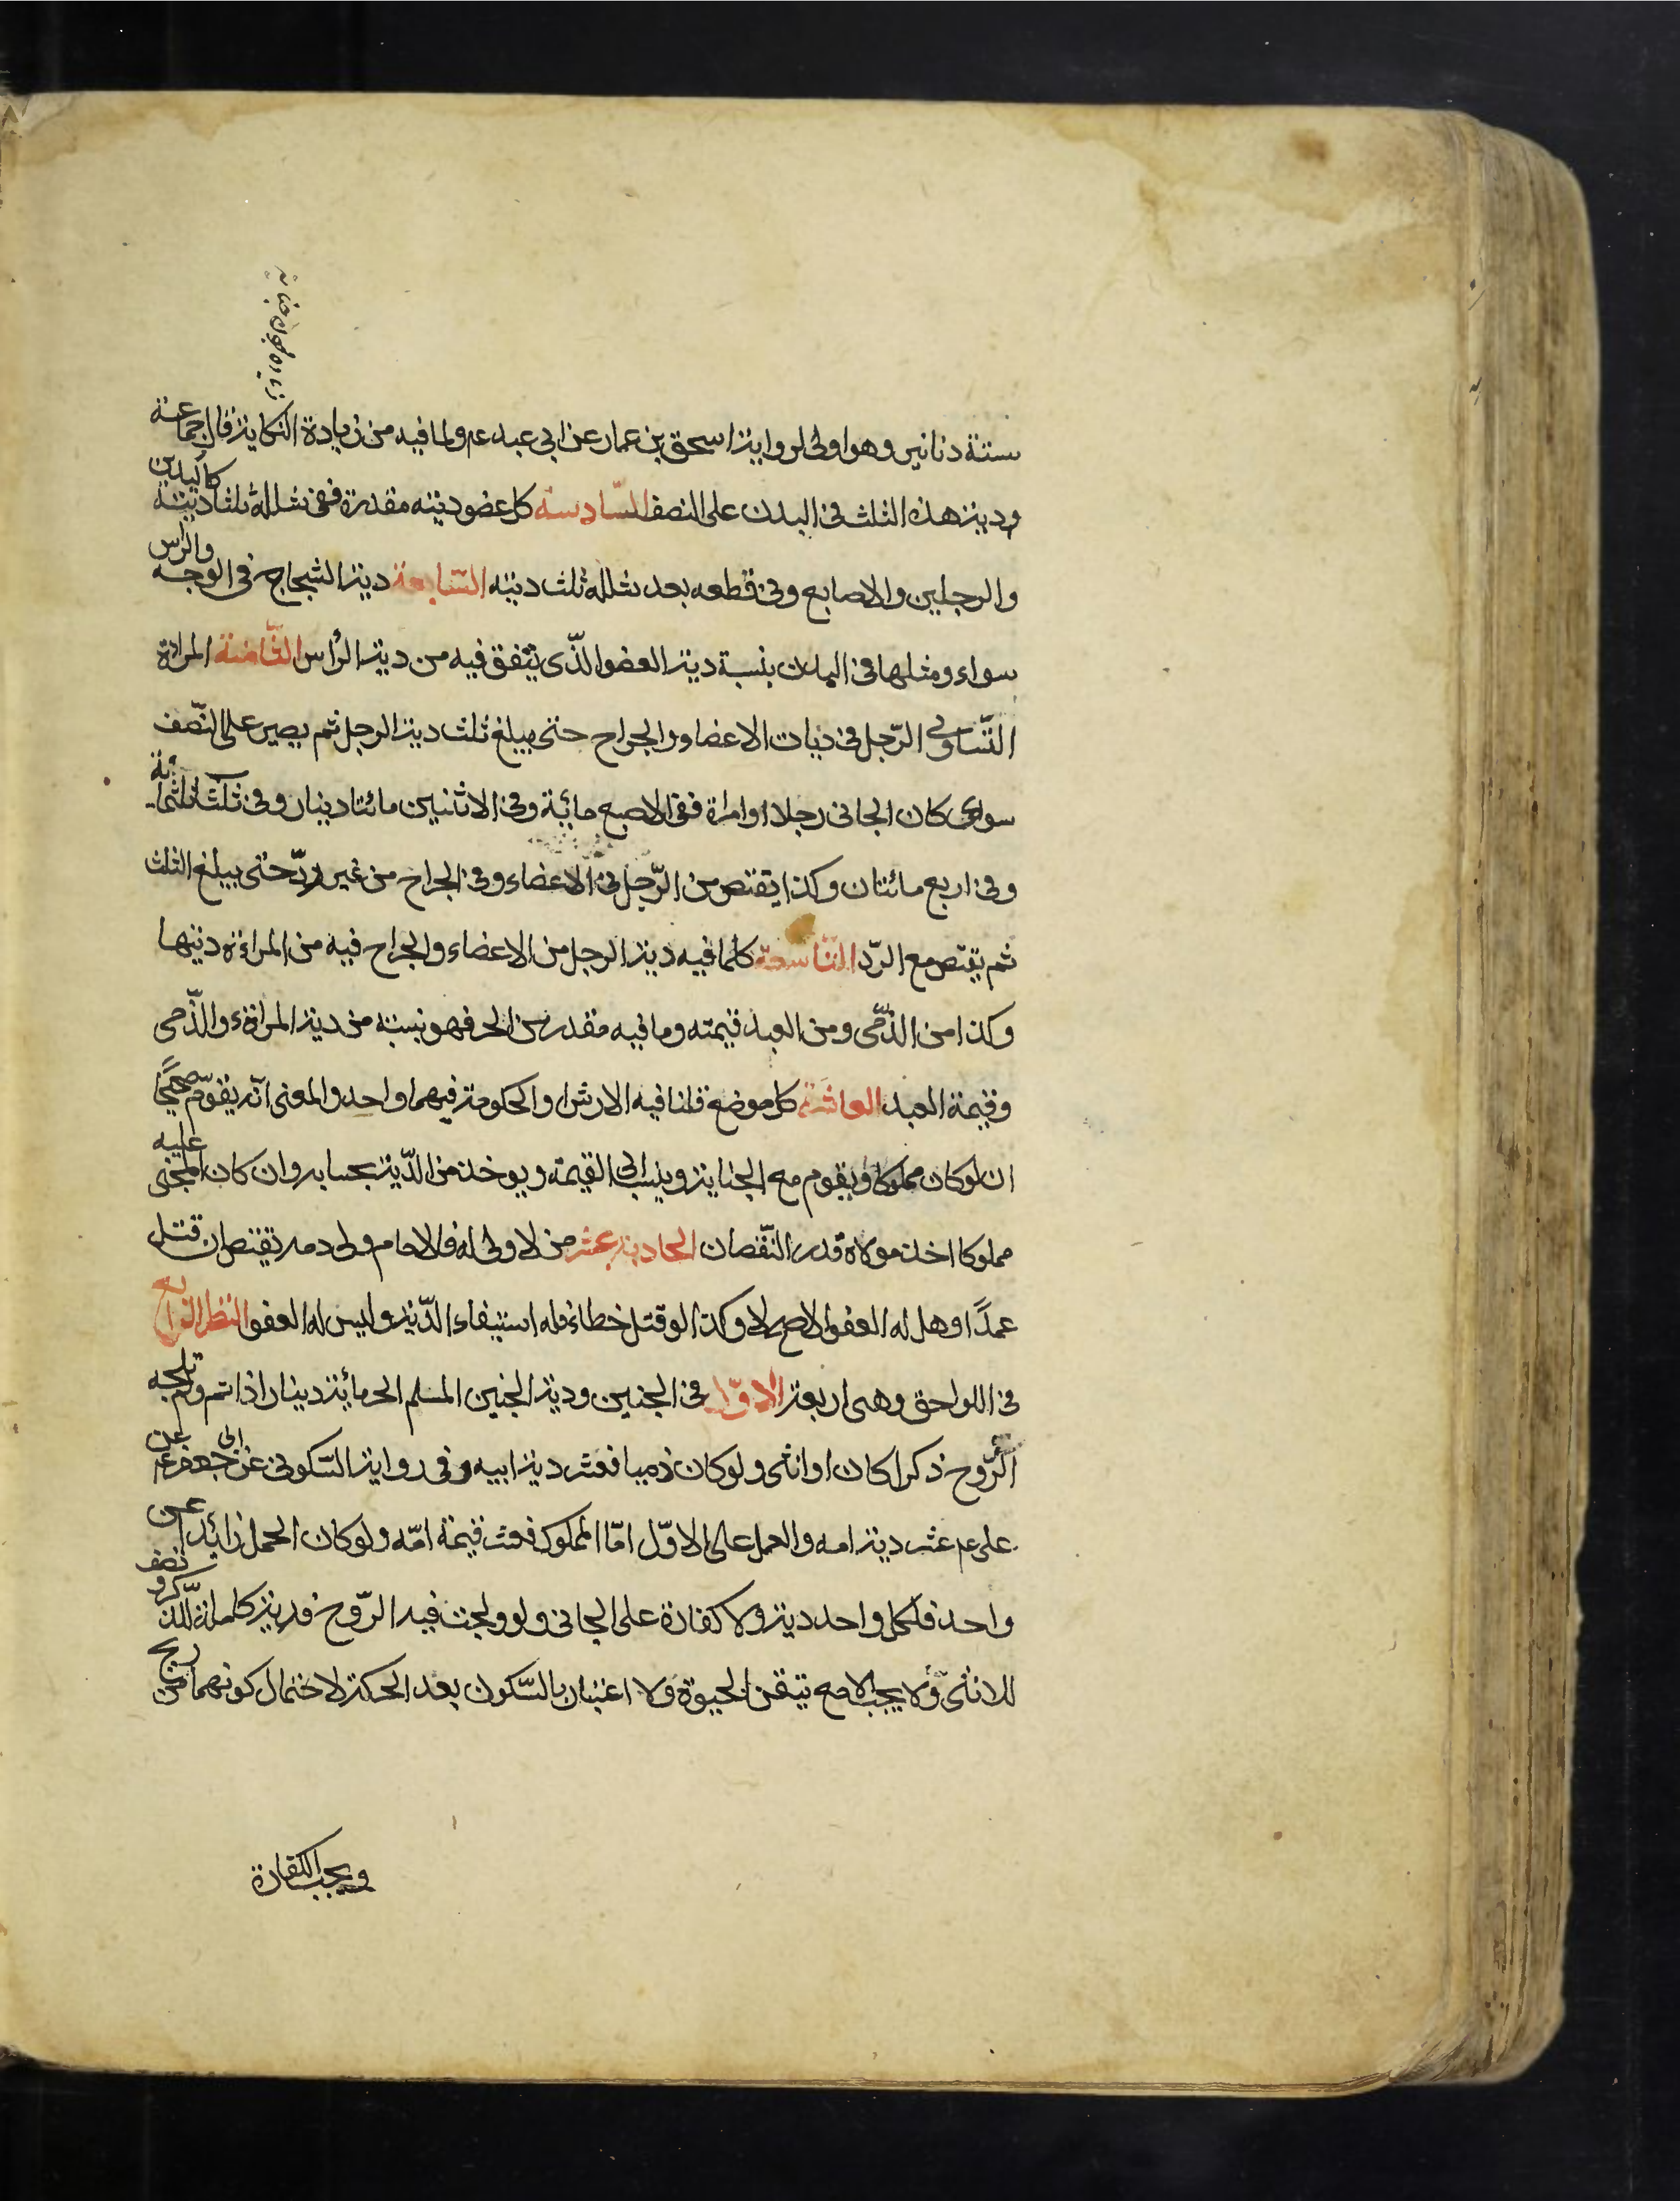 ستة دنانير وهو اولى لرواية اسحق بن عمار عن ابى عبد عم ولما فيه من زيادة النكاية قال جماعة
ودية هذه الثلث فى البدن على النصف السّادسة كل عضو ديته مقدرة ففى شلله ثلثا ديته كاليدين
والرجلين والاصابع وفى قطعه بعد شلله ثلث ديته السّابعة دية الشجاج فى الوجه والراس
سواء ومثلها فى البدن بنسبة دية العضو الذّى يتفق فيه من دية الرأس الثّامنة المراة
التّساوى الرّجل فى ديات الاعضاء والجراح حتى يبلغ ثلث دية الرجل ثم يصير على النّصف
سواى كان الجانى رجلا او امراة ففى الاصبع مائة وفى الاثنين مائتا دينار وفى ثلث ثلثمائة
وفى اربع مائتان وكذا يقتص من الرّجل فى الاعضاء وفى الجراح من غير ردّ حتى يبلغ الثلث
ثم يقتص مع الرّد التّاسعة كلما فيه دية الرجل من الاعضاء والجراح فيه من المراءة ديتها
وكذا من الذّمّى ومن العبد قيمته وما فيه مقدر من الحر فهو بنسبته من دية المراةء والذّمى
وقيمة العبد العاشرة كل موضع قلنا فيه الارش او الحكومة فيهما واحد والمعنى انّه يقوّم صحيحًا
ان لو كان مملوكا ويقوم مع الجناية وينسب الى القيمة ويوخذ من الدّية بحسابه وان كان المجنى عليه
مملوكا اخذ مولاه قدر النّقصان الحادية عشر من لا ولى له فالامام ولى دمه يقتص ان قتل
عمدًا وهل له العفو الاصح لا وكذا لو قتل خطاء فله استيفاء الدّية وليس له العفو النظر الرابع
فى اللواحق وهى اربعة الاوّل فى الجنين ودية الجنين المسلم الحر مائة دينار اذا تم ولم تلجه
الرّوح ذكرا كان او انثى ولو كان ذميا فعشر دية ابيه وفى رواية السّكونى عن ابى جعفر عم عن
على عم عشر دية امه والعمل على الاوّل امّا المملوك فعشر قيمة امّه ولو كان الحمل زائدا عن
واحد فلكل واحد دية ولا كفارة على الجانى ولو ولجت فيه الرّوح فدية كاملة للذّكر ونصف
للانثى ولا يجب الا مع تيقن الحيوة ولا اعتبار بالسّكون بعد الحركة لاحتمال كونهما من ريح
ويجب الكفارة